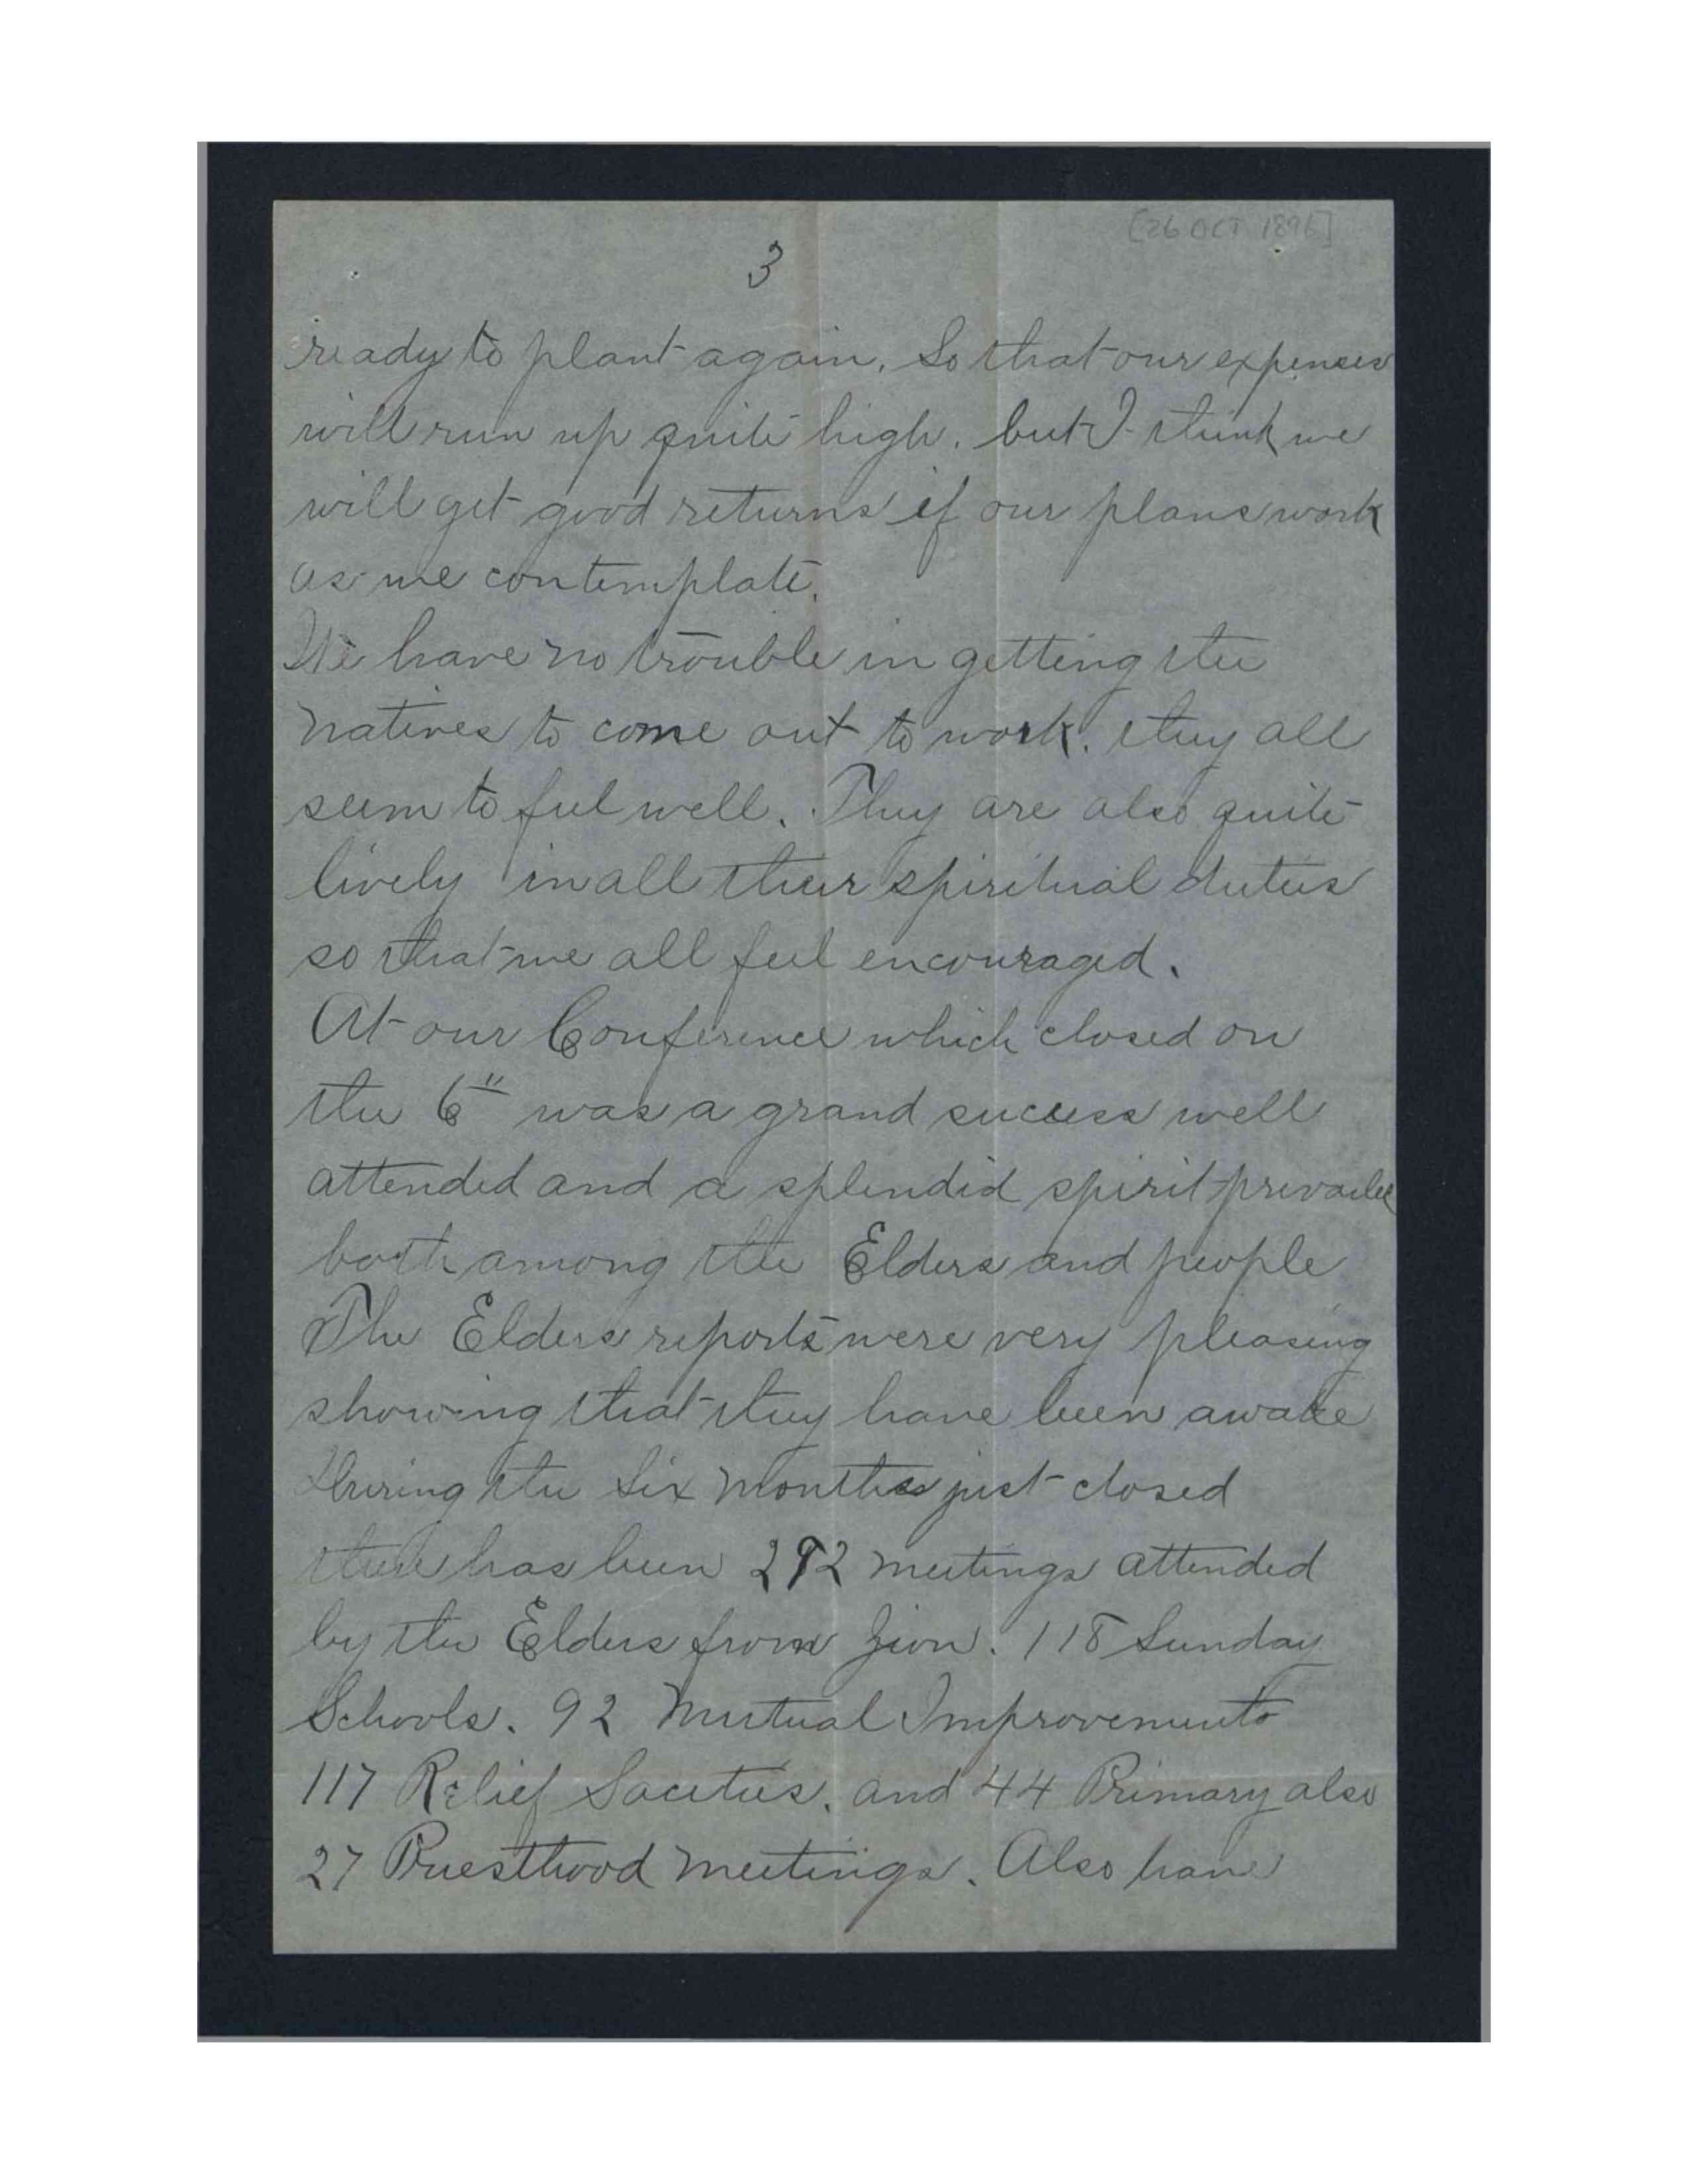 [26 OCT 1896]
3
ready to plant again. So that our expenses
will run up quite high. but I think we
will get good returns if our plans work
as we contemplate.
We have no trouble in getting the
natives to come out to work. they all
seem to feel well. They are also quite
lively in all their spiritual duties
so that we all feel encouraged.
At our Conference which closed on
the 6" was a grand success well
attended and a splendid spirit prevailed
both among the Elders and people
The Elders reports were very pleasing
showing that they have been awake
During the Six Months just closed
there has been 292 meetings attended
by the Elders from Zion. 118 Sunday
Schools. 92 Mutual Improvements
117 Relief Societies. and 44 Primary also
27 Priesthood meetings. Also have